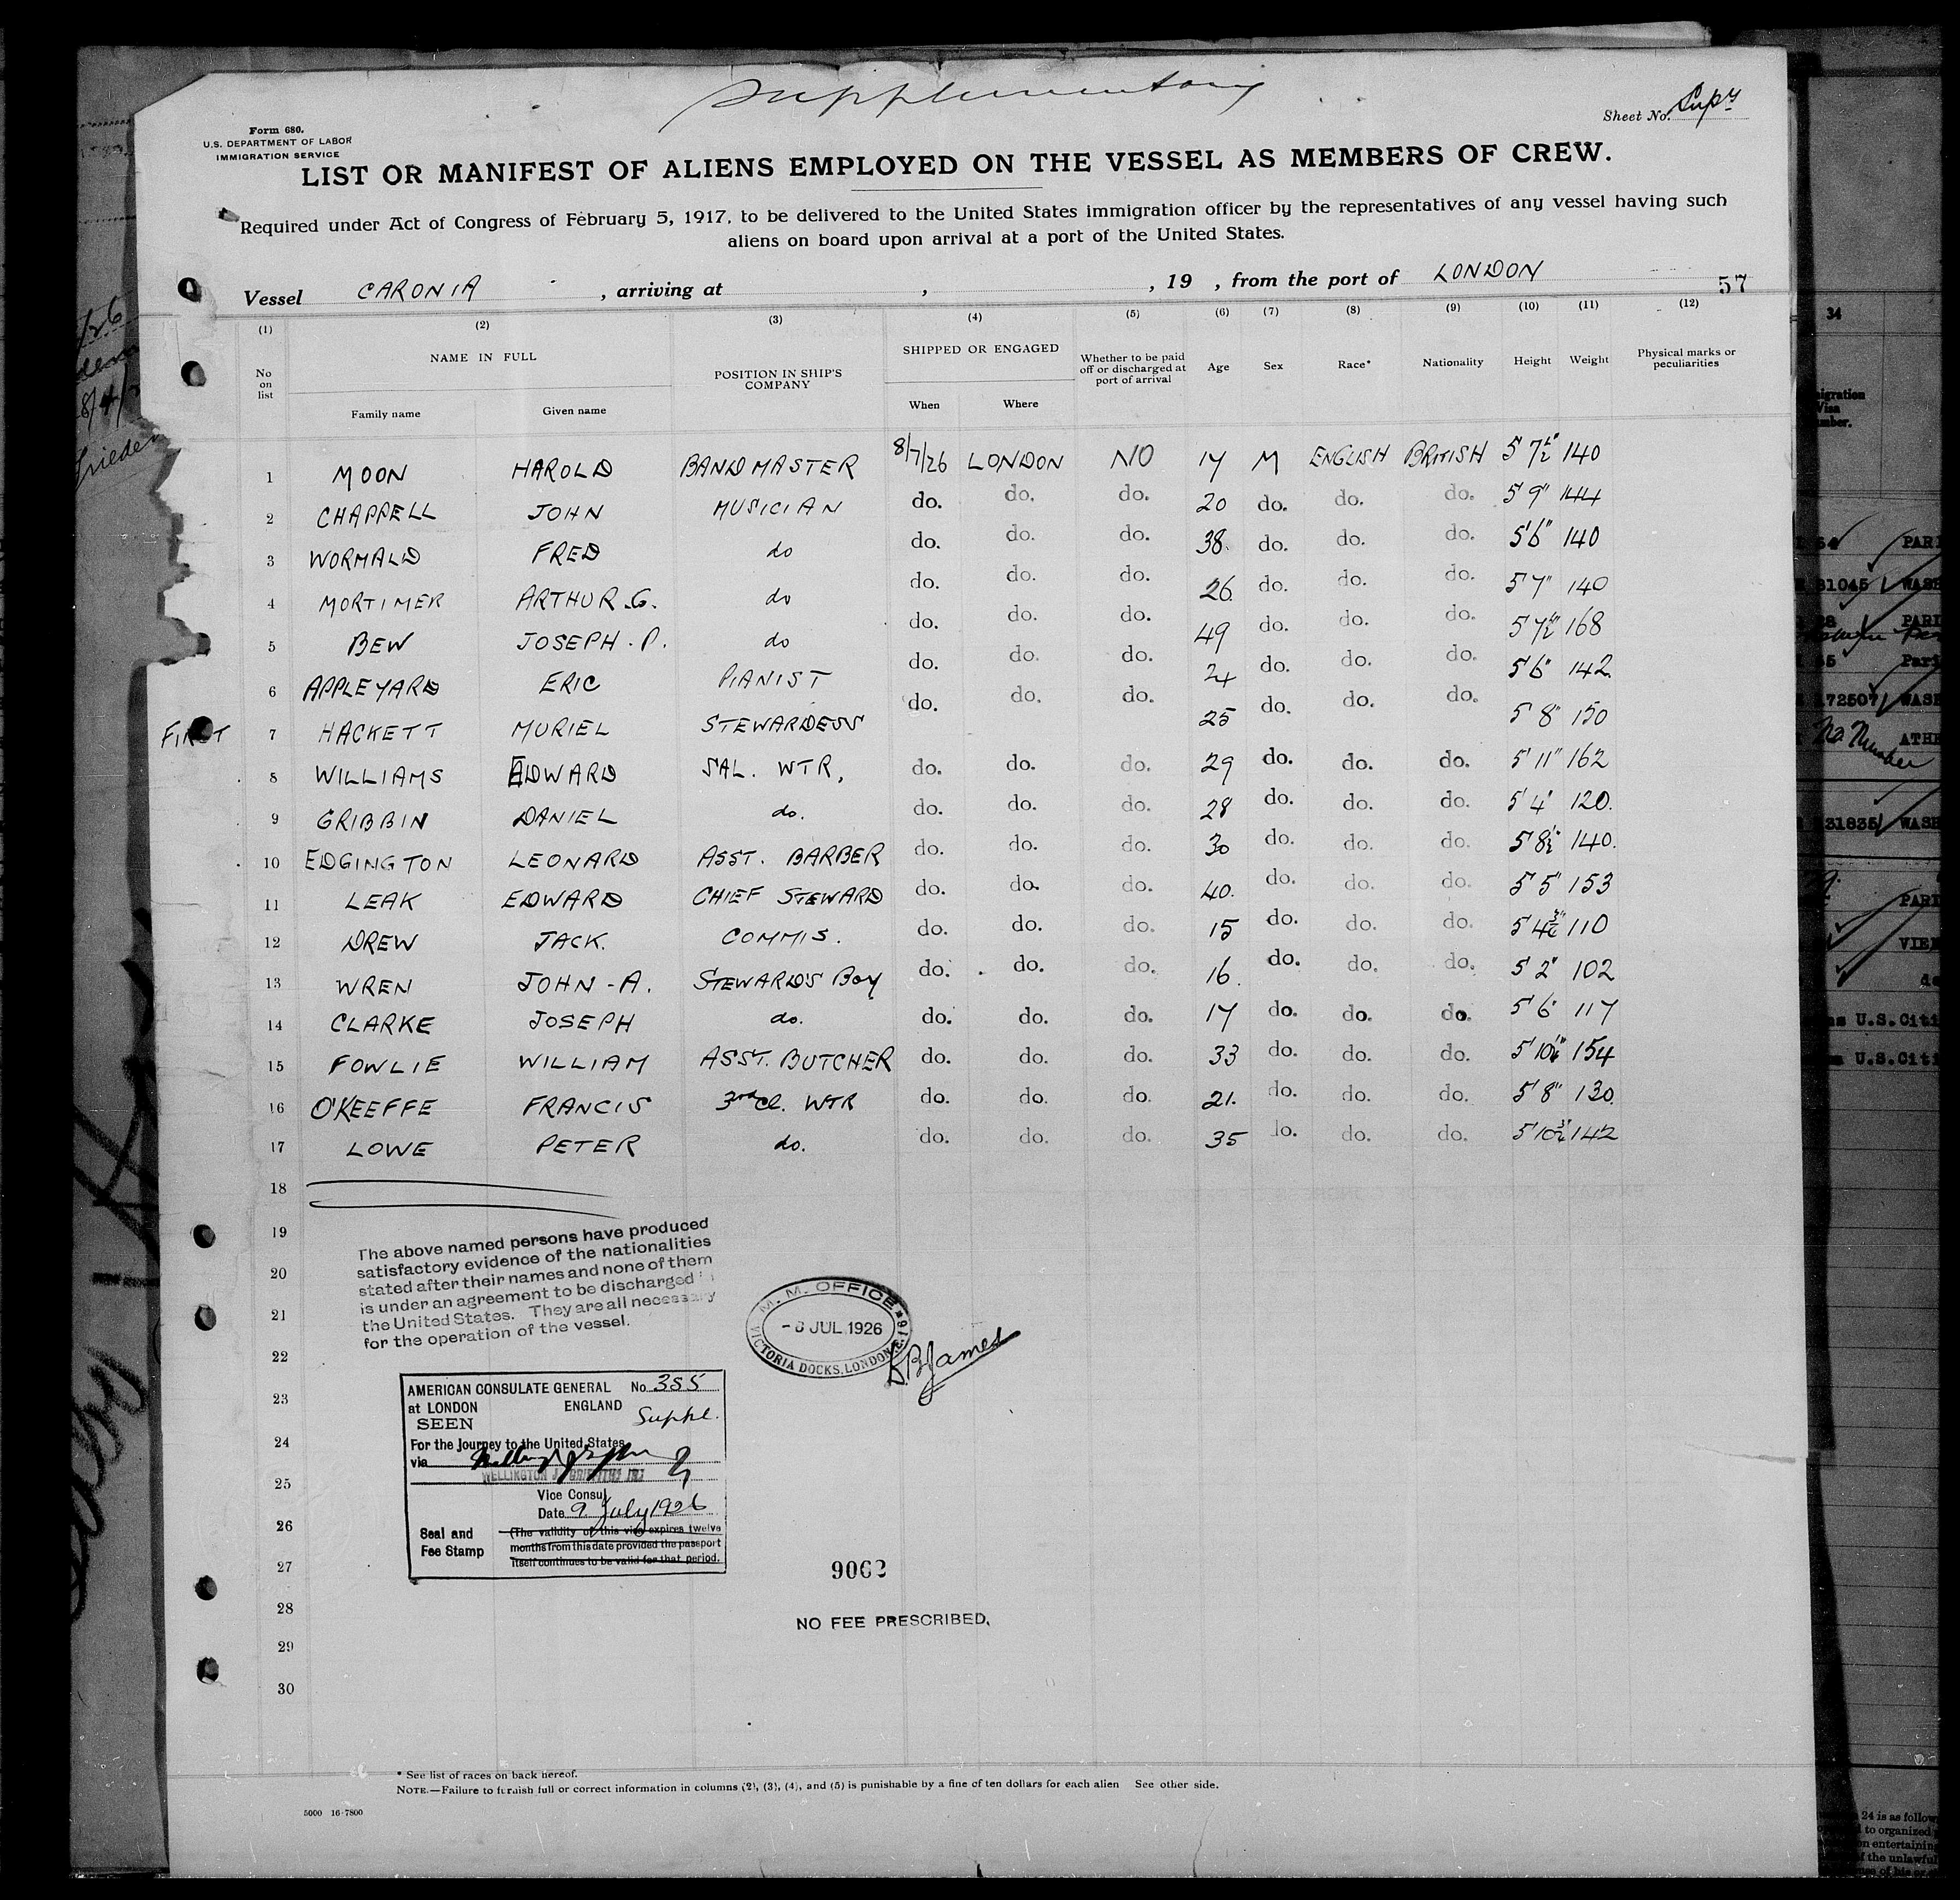 Supplementary
Form 680.
U.S. DEPARTMENT OF LABOR
IMMIGRATION SERVICE
Sheet No. Supy
LIST OR MANIFEST OF ALIENS EMPLOYED ON THE VESSEL AS MEMBERS OF CREW.
Required under Act of Congress of February 5, 1917, to be delivered to the United States immigration officer by the representatives of any vessel having such
aliens on board upon arrival at a port of the United States.
Vessel CARONIA , arriving at , , 19 , from the port of LONDON 57
(1) (2) (3) (4) (5) (6) (7) (8) (9) (10) (11) (12)
No on list NAME IN FULL Family name Given name POSITION IN SHIP'S COMPANY SHIPPED OR ENGAGED When Where Whether to be paid off or discharged at port of arrival Age Sex Race* Nationality Height Weight Physical marks or peculiarities
1 MOON HAROLD BANDMASTER 8/7/26 LONDON NO 17 M ENGLISH BRITISH 5' 7½" 140
2 CHAPPELL JOHN MUSICIAN do. do. do. 20 do. do. do. 5' 9" 144
3 WORMALD FRED do do. do. do. 38. do. do. do. 5' 6" 140
4 MORTIMER ARTHUR.G. do do. do. do. 26. do. do. do. 5' 7" 140
5 BEW JOSEPH.P. do do. do. do. 49 do. do. do. 5' 7½" 168
6 APPLEYARD ERIC PIANIST do. do. do. 24 do. do. do. 5' 6" 142
FIRST 7 HACKETT MURIEL STEWARDESS do. do. do. 25 do. do. do. 5' 8" 150
8 WILLIAMS EDWARD SAL. WTR, do. do. do. 29 do. do. do. 5' 11" 162
9 GRIBBIN DANIEL do. do. do. do. 28 do. do. do. 5' 4" 120.
10 EDGINGTON LEONARD ASST. BARBER do. do. do. 30 do. do. do. 5' 8½" 140.
11 LEAK EDWARD CHIEF STEWARD do. do. do. 40. do. do. do. 5' 5" 153
12 DREW JACK. COMMIS. do. do. do. 15 do. do. do. 5' 4 110
13 WREN JOHN-A. STEWARD'S BOY do. do. do. 16. do. do. do. 5' 2" 102
14 CLARKE JOSEPH do. do. do. do. 17 do. do. do. 5' 6" 117
15 FOWLIE WILLIAM ASST. BUTCHER do. do. do. 33 do. do. do. 5' 10 154
16 O'KEEFFE FRANCIS 3rd Cl. WTR do. do. do. 21. do. do. do. 5' 8" 130.
17 LOWE PETER do. do. do. do. 35 do. do. do. 5' 10 142
18
19
20
21
22
23
24
25
26
27
28
29
30
The above named persons have produced
satisfactory evidence of the nationalities
stated after their names and none of them
is under an agreement to be discharged in
the United States. They are all necessary
for the operation of the vessel.
M. M. OFFICE
JUL 1926
VICTORIA DOCKS, LONDON
James
AMERICAN CONSULATE GENERAL No. 355
at LONDON ENGLAND Suppl.
SEEN
For the Journey to the United States
via
WELLINGTON J. GRIFFITHS
Vice Consul
Date 9 July 1926
Seal and Fee Stamp
(The validity of this visa expires twelve
months from this date provided the passport
itself continues to be valid for that period.
9062
NO FEE PRESCRIBED.
* See list of races on back hereof.
NOTE.—Failure to furnish full or correct information in columns (2), (3), (4), and (5) is punishable by a fine of ten dollars for each alien See other side.
5000 16-7800
34
31045 WASH
72507 WASH
No Number ATHE
31835 WASH
U.S.Citi
U.S.Citi